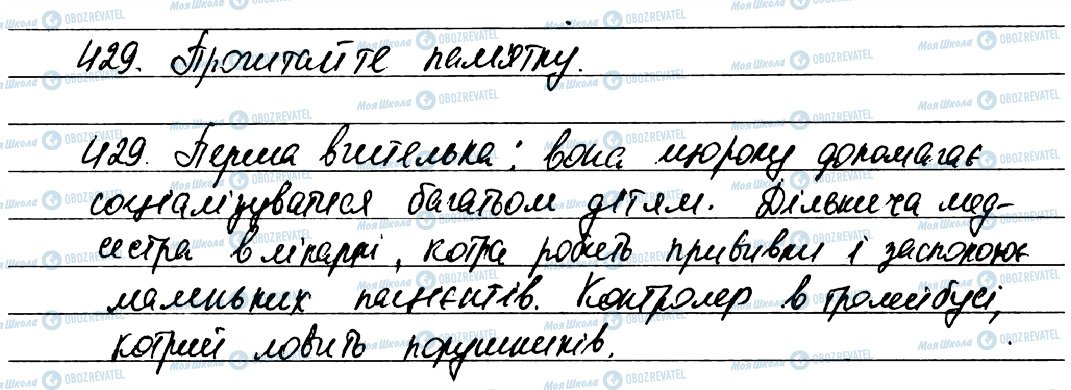 429. Прочитайте пам'ятку.
429. Перша вчителька: вона щороку допомагає
соціалізуватися багатьом дітям. Дільнича мед-
сестра в лікарні, котра робить прививки і заспокоює
маленьких пацієнтів. Контролер в тролейбусі,
котрий ловить порушників.